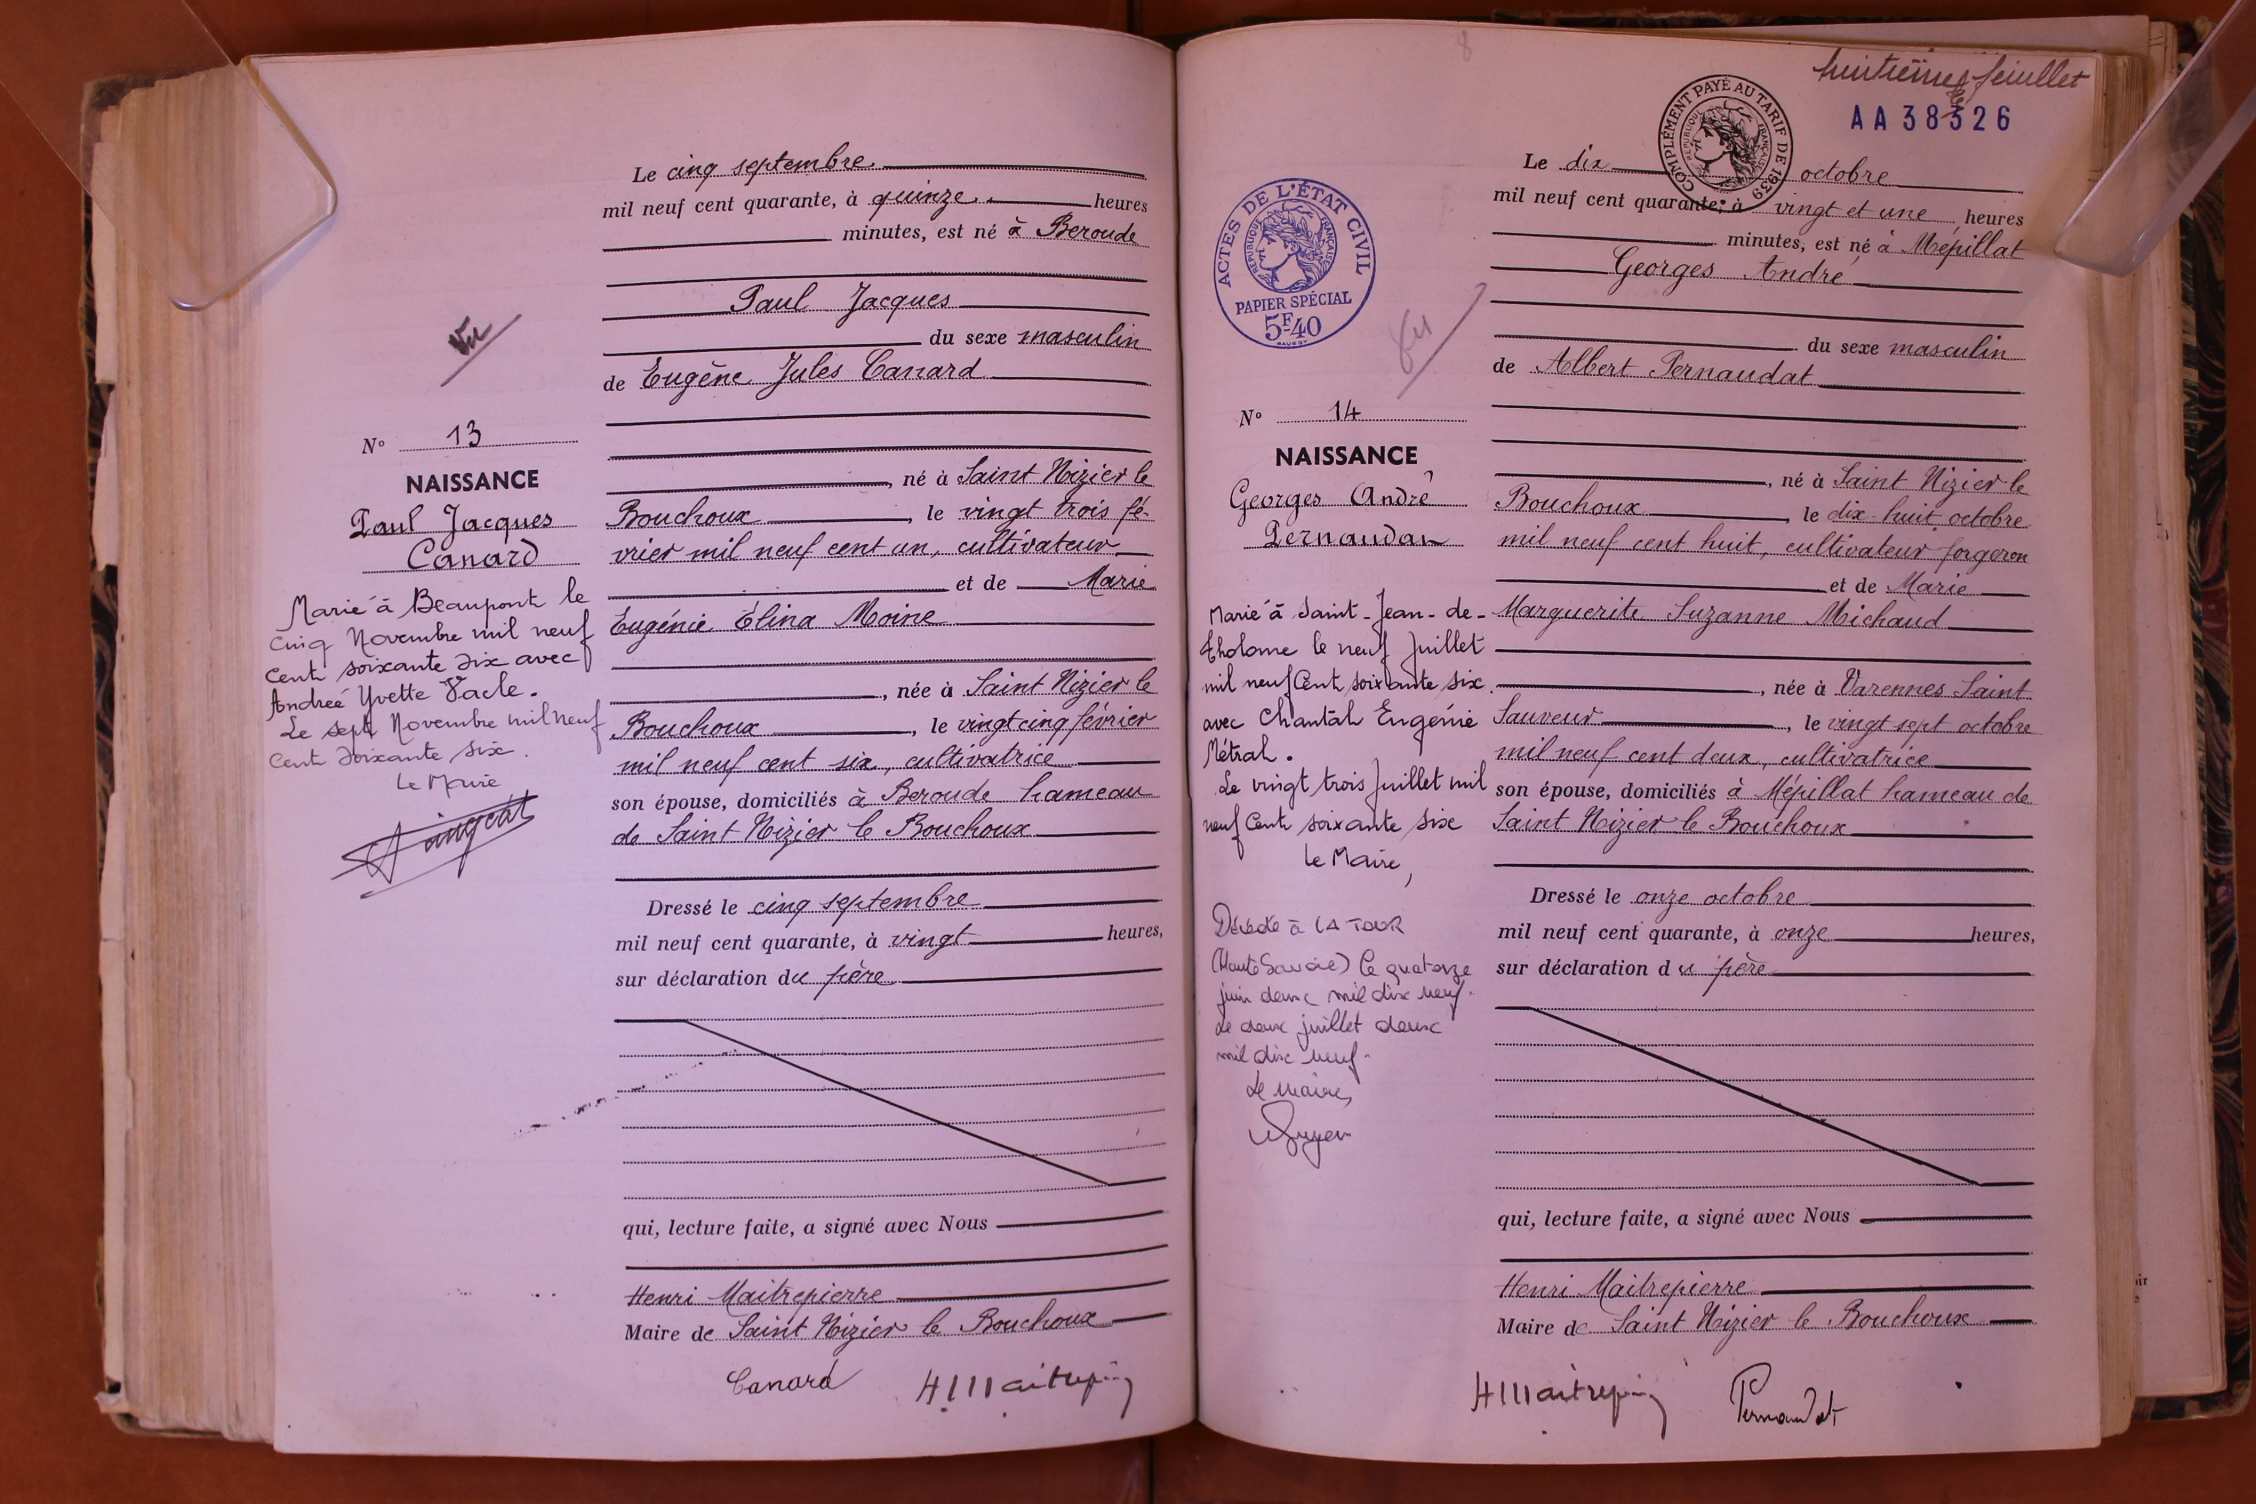 Le cinq septembre
mil neuf cent quarante, à quinze heures
minutes, est né à Beroude
Paul Jacques
du sexe masculin
de Eugène Jules Canard
né à Saint Nizier le
Bouchoux, le vingt trois fé-
vrier mil neuf cent un, cultivateur
et de Marie
Eugénie Élina Moine
, née à Saint Nizier le
Bouchoux, le vingt cinq février
mil neuf cent six, cultivatrice
son épouse, domiciliés à Beroude hameau
de Saint Nizier le Bouchoux
Dressé le cinq septembre
mil neuf cent quarante, à vingt heures,
sur déclaration du père
qui, lecture faite, a signé avec Nous
Henri Maitrepierre
Maire de Saint Nizier le Bouchoux
Canard
Vu
N° 13
NAISSANCE
Paul Jacques
Canard
Marié à Beaupont le
cinq Novembre mil neuf
cent soixante six avec
Andreé Yvette Vacle.
Le sept Novembre mil neuf
cent soixante six.
Le Maire
8
huitième feuillet
AA38326
COMPLÉMENT PAYÉ AU TARIF DE 1939
RÉPUBLIQUE FRANÇAISE
ACTES DE L'ÉTAT CIVIL
RÉPUBLIQUE FRANÇAISE
PAPIER SPÉCIAL
5F40
Vu
N° 14
NAISSANCE
Georges André
Pernaudat
Marié à Saint-Jean-de-
Tholome le neuf Juillet
mil neuf Cent soixante six
avec Chantal Eugénie
Métral.
Le vingt trois Juillet mil
neuf Cent soixante six
Le Maire,
Décédé à LA TOUR
(Haute Savoie) le quatorze
juin deux mil dix neuf.
Le deux juillet deux
mil dix neuf.
Le Maire,
Le dix octobre
mil neuf cent quarante, à vingt et une heures
minutes, est né à Mépillat
Georges André
du sexe masculin
de Albert Pernaudat
, né à Saint Nizier le
Bouchoux, le dix-huit octobre
mil neuf cent huit, cultivateur forgeron
et de Marie
Marguerite Suzanne Michaud
, née à Varennes Saint
Sauveur, le vingt sept octobre
mil neuf cent deux, cultivatrice
son épouse, domiciliés à Mépillat hameau de
Saint Nizier le Bouchoux
Dressé le onze octobre
mil neuf cent quarante, à onze heures,
sur déclaration du père
qui, lecture faite, a signé avec Nous
Henri Maitrepierre
Maire de Saint Nizier le Bouchoux
Pernaudat